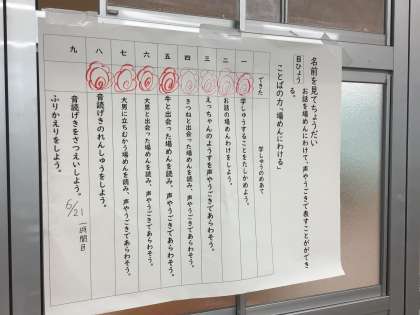 名前を見てちょうだい
目ひょう お話を場めんにわけて、声やうごきで表すことができ
る。
ことばの力「場めんにわける」
できた 学しゅうのめあて
一 学しゅうすることをたしかめよう。
二 お話の場めんわけをしよう。
三 えっちゃんのようすを声やうごきであらわそう。
四 きつねと出会った場めんを読み、声やうごきであらわそう。
五 牛と出会った場めんを読み、声やうごきであらわそう。
六 大男と出会った場めんを読み、声やうごきであらわそう。
七 大男に立ちむかう場めんを読み、声やうごきであらわそう。
八 音読げきのれんしゅうをしよう。
九 音読げきをさつえいしよう。 6/21 一時間目
ふりかえりをしよう。